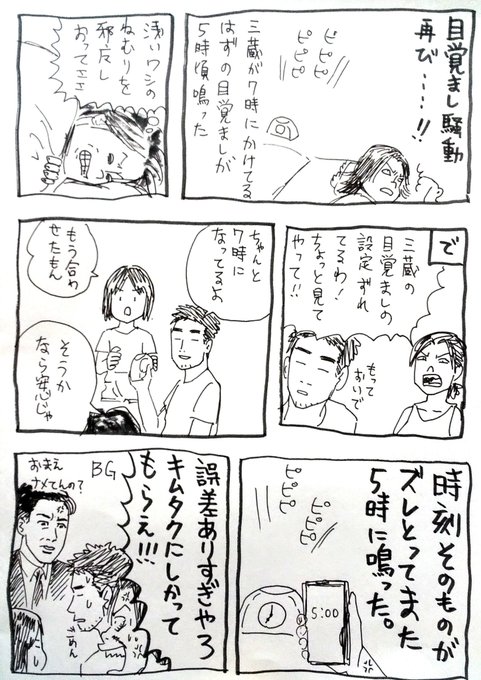 目覚まし騒動
再び……!!
ピピピ
ピピピ
三蔵が7時にかけてる
はずの目覚ましが
5時頃鳴った
浅いワシの
ねむりを
おってエエ
で
三蔵の
目覚ましの
設定ずれ
てるわ!
ちょっと見て
やって!!
もって
おいで
ちゃんと
7時に
なってるよ
もう合わ
せたもん
そうか
なら安心じゃ
時刻そのものが
ズレとってまた
5時に鳴った。
ピピピ
ピピピ
5:00
誤差ありすぎやろ
キムタクにしかって
もらえ!!!
BG
おまえ
ナメてんの?
ごめん